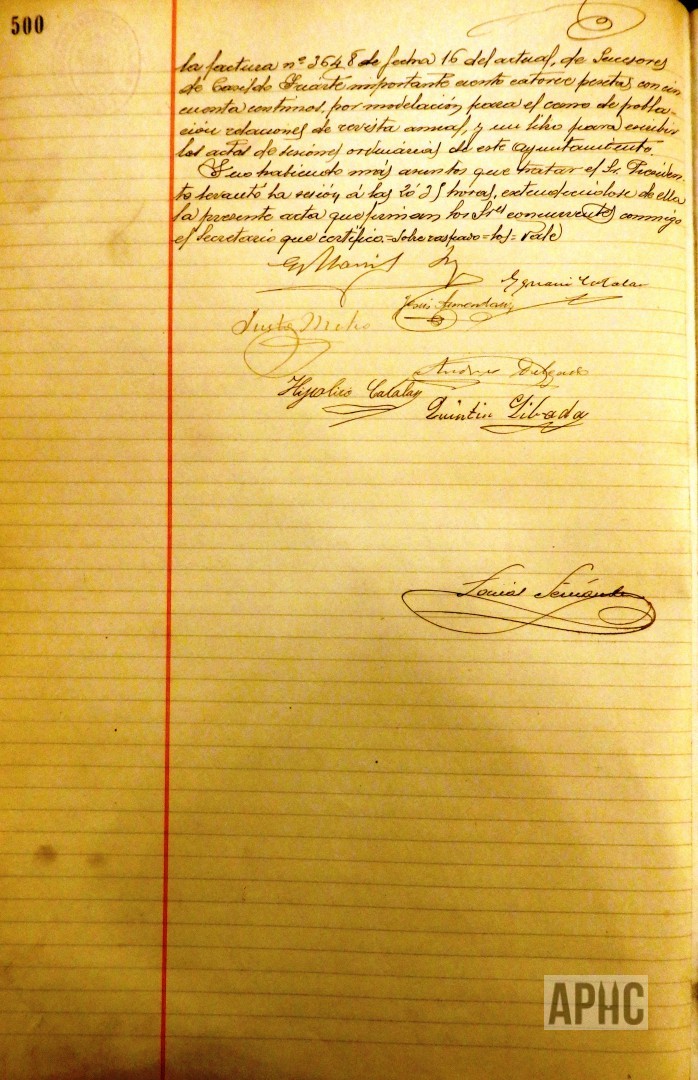 500
la factura nº 3648 de fecha 16 del actual, de Sucesores
de Casildo Iriarte importante ciento catorce pesetas con cin
cuenta centimos, por modelación para el censo de pobla-
ción relaciones de revista anual, y un libro para escribir
las actas de sesiones ordinarias de este Ayuntamiento.
Y no habiendo más asuntos que tratar el Sr. Presiden-
te levantó la sesión á las 20'25 horas, extendiendose de ella
la presente acta que firman los Sres concurrentes conmigo
el Secretario que certifico.=Sobre raspado=los=Vale
Jesús Armendariz
Andres Delgado
Hipolito Catalan
Quintin Libada
APHC